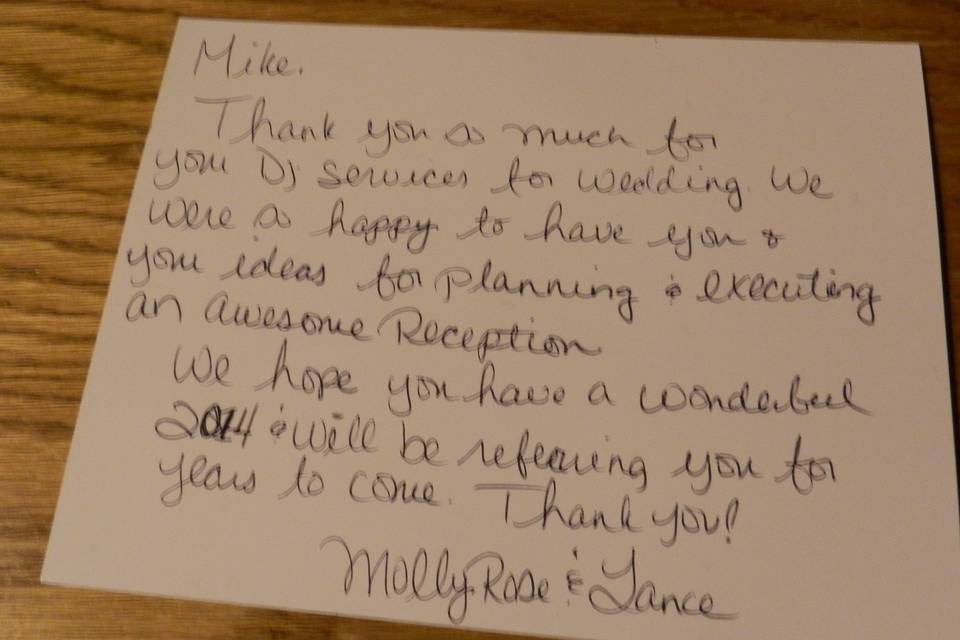 Mike.
Thank you so much for
your DJ services for wedding. We
were so happy to have you &
your ideas for planning & executing
an awesome Reception
We hope you have a wonderful
2014 & will be referring you for
years to come. Thank you!
MollyRose & Lance